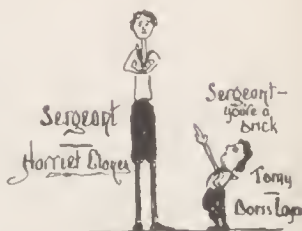 Sergeant
Harriet
Sergeant—
you're a
brick
Tomy
Doris